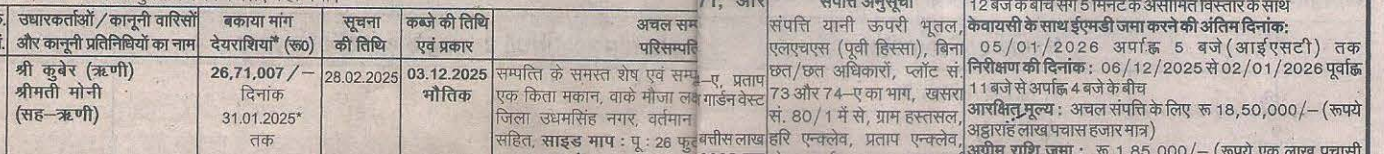 उधारकर्ताओं / कानूनी वारिसों
और कानूनी प्रतिनिधियों का नाम
बकाया मांग
देयराशियाँ* (रू0)
सूचना
की तिथि
कब्जे की तिथि
एवं प्रकार
अचल सम
परिसम्पत्ति
श्री कुबेर (ऋणी)
श्रीमती मोनी
(सह-ऋणी)
26,71,007 /-
दिनांक
31.01.2025*
तक
28.02.2025
03.12.2025
भौतिक
सम्पत्ति के समस्त शेष एवं सम्पू
एक किता मकान, वाके मौजा लव
जिला उधमसिंह नगर, वर्तमान
सहित, साइड माप : पू : 26 फुट
-ए, प्रताप
गार्डन वेस्ट
बत्तीस लाख
संपत्ति यानी ऊपरी भूतल,
एलएचएस (पूर्वी हिस्सा), बिना
छत/छत अधिकारों, प्लॉट सं.
73 और 74-ए का भाग, खसरा
सं. 80/1 में से, ग्राम हस्तसल,
हरि एन्क्लेव, प्रताप एन्क्लेव,
12 बजे के बीच संग 5 मिनट के असीमित विस्तार के साथ
केवायसी के साथ ईएमडी जमा करने की अंतिम दिनांक:
05/01/2026 अपराह्न 5 बजे (आईएसटी) तक
निरीक्षण की दिनांक : 06/12/2025 से 02/01/2026 पूर्वाह्न
11 बजे से अपराह्न 4 बजे के बीच
आरक्षित मूल्य : अचल संपत्ति के लिए रू 18,50,000/- (रूपये
अट्ठारह लाख पचास हजार मात्र)
अग्रीम राशि जमा : रू 1,85,000/- (रूपये एक लाख पचासी